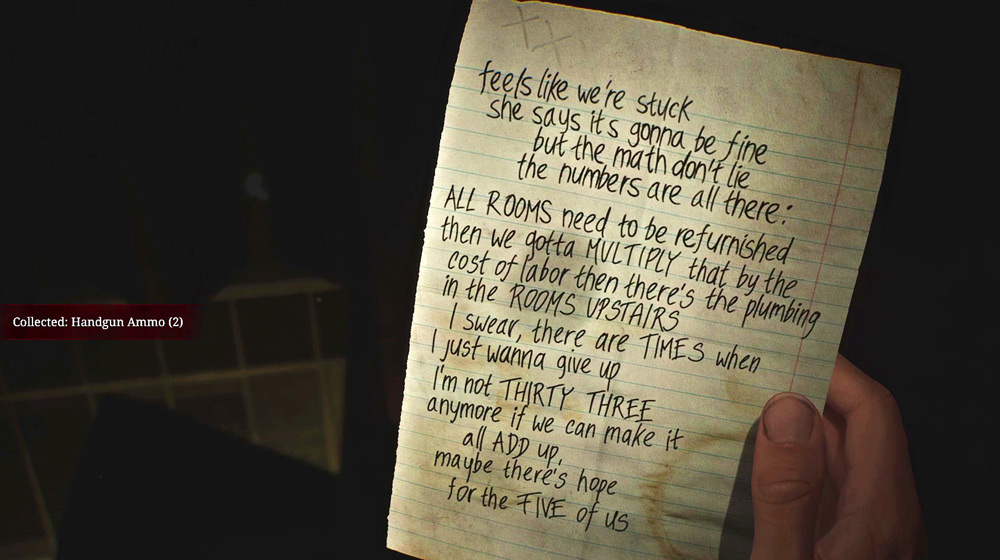 XX
feels like we're stuck
she says it's gonna be fine
but the math don't lie
the numbers are all there:
ALL ROOMS need to be refurnished
then we gotta MULTIPLY that by the
cost of labor then there's the plumbing
in the ROOMS UPSTAIRS
I swear, there are TIMES when
I just wanna give up
I'm not THIRTY THREE
anymore if we can make it
all ADD up,
maybe there's hope
for the FIVE of us
Collected: Handgun Ammo (2)